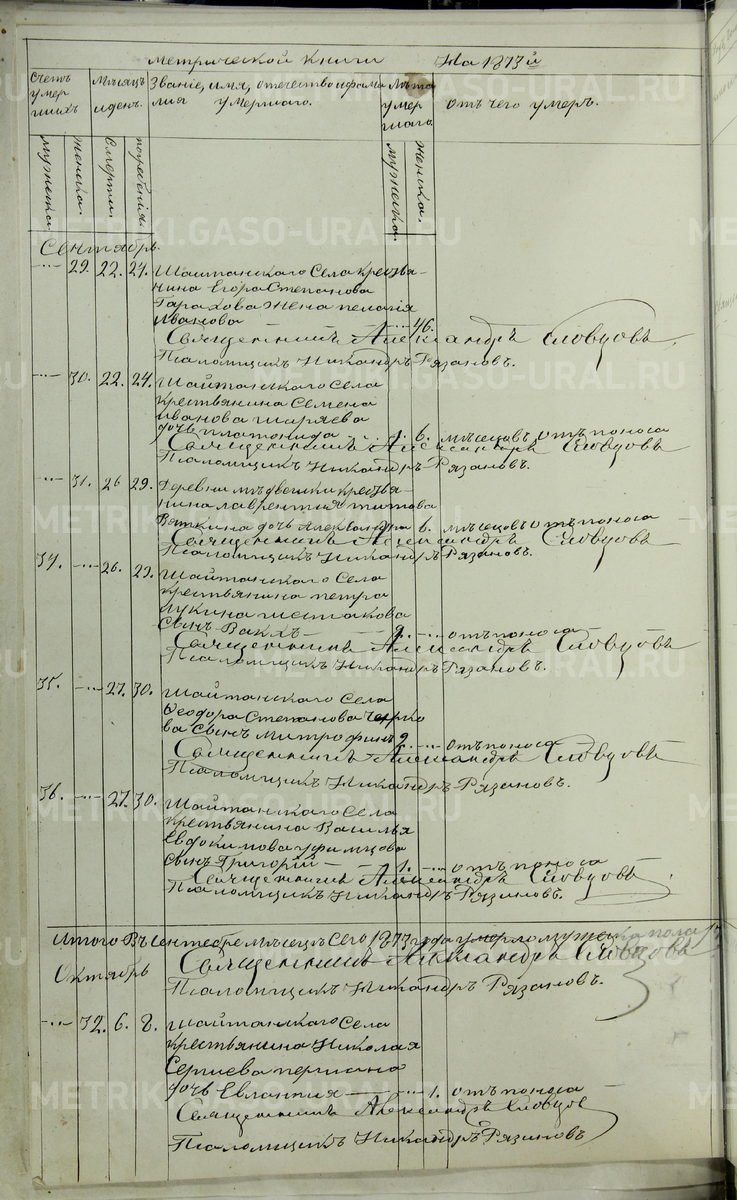 Метрической книги На 1873й
Счетъ умершихъ
Мѣсяцъ и день.
Званіе, имя, отчество и фамилия умершаго.
Лѣта умершаго.
отъ чего умеръ.
мужска.
женска.
Смерти.
погребенія.
мужска.
женска.
Сентябрь.
29. 22. 24. Шайтанскаго Села крестья-
нина Егора Степанова
жена пелагія
Иванова 46.
Священникъ Александръ Словцовъ.
Псаломщикъ Никандръ Рязановъ.
30. 22. 24. Шайтанскаго Села
крестьянина Семена
Иванова Ширяева
дочь платонида 6. мѣсецовъ отъ поноса
Священникъ Александръ Словцовъ
Псаломщикъ Никандръ Рязановъ.
31. 26 29. Деревни крестья-
нина лаврентия титова
Вяткина дочь Александра 6. мѣсецовъ отъ поноса
Священникъ Александръ Словцовъ
Псаломщикъ Никандръ Рязановъ.
34. 26. 29. Шайтанскаго Села
крестьянина петра
лукина шестакова
Сынъ Вакхъ 2. отъ поноса
Священникъ Александръ Словцовъ
Псаломщикъ Никандръ Рязановъ.
35. 27. 30. Шайтанскаго Села
Феодора Степанова
Сынъ митрофанъ 2. отъ поноса
Священникъ Александръ Словцовъ
Псаломщикъ Никандръ Рязановъ.
36. 27. 30. Шайтанскаго Села
крестьянина Василья
Евдокимова уфимцова
Сынъ Григорій 1. отъ поноса
Священникъ Александръ Словцовъ
Псаломщикъ Никандръ Рязановъ.
Итого Въ Сентебре мѣсецѣ сего 1873 года умерло мужеска пола
Священникъ Александръ Словцовъ
Октябрь
Псаломщикъ Никандръ Рязановъ.
32. 6. 8. Шайтанскаго Села
крестьянина Николая
Сергиева
дочь Евлампия 1. отъ поноса
Священникъ Александръ Словцов
Псаломщикъ Никандръ Рязановъ
METRIKI.GASO-URAL.RU